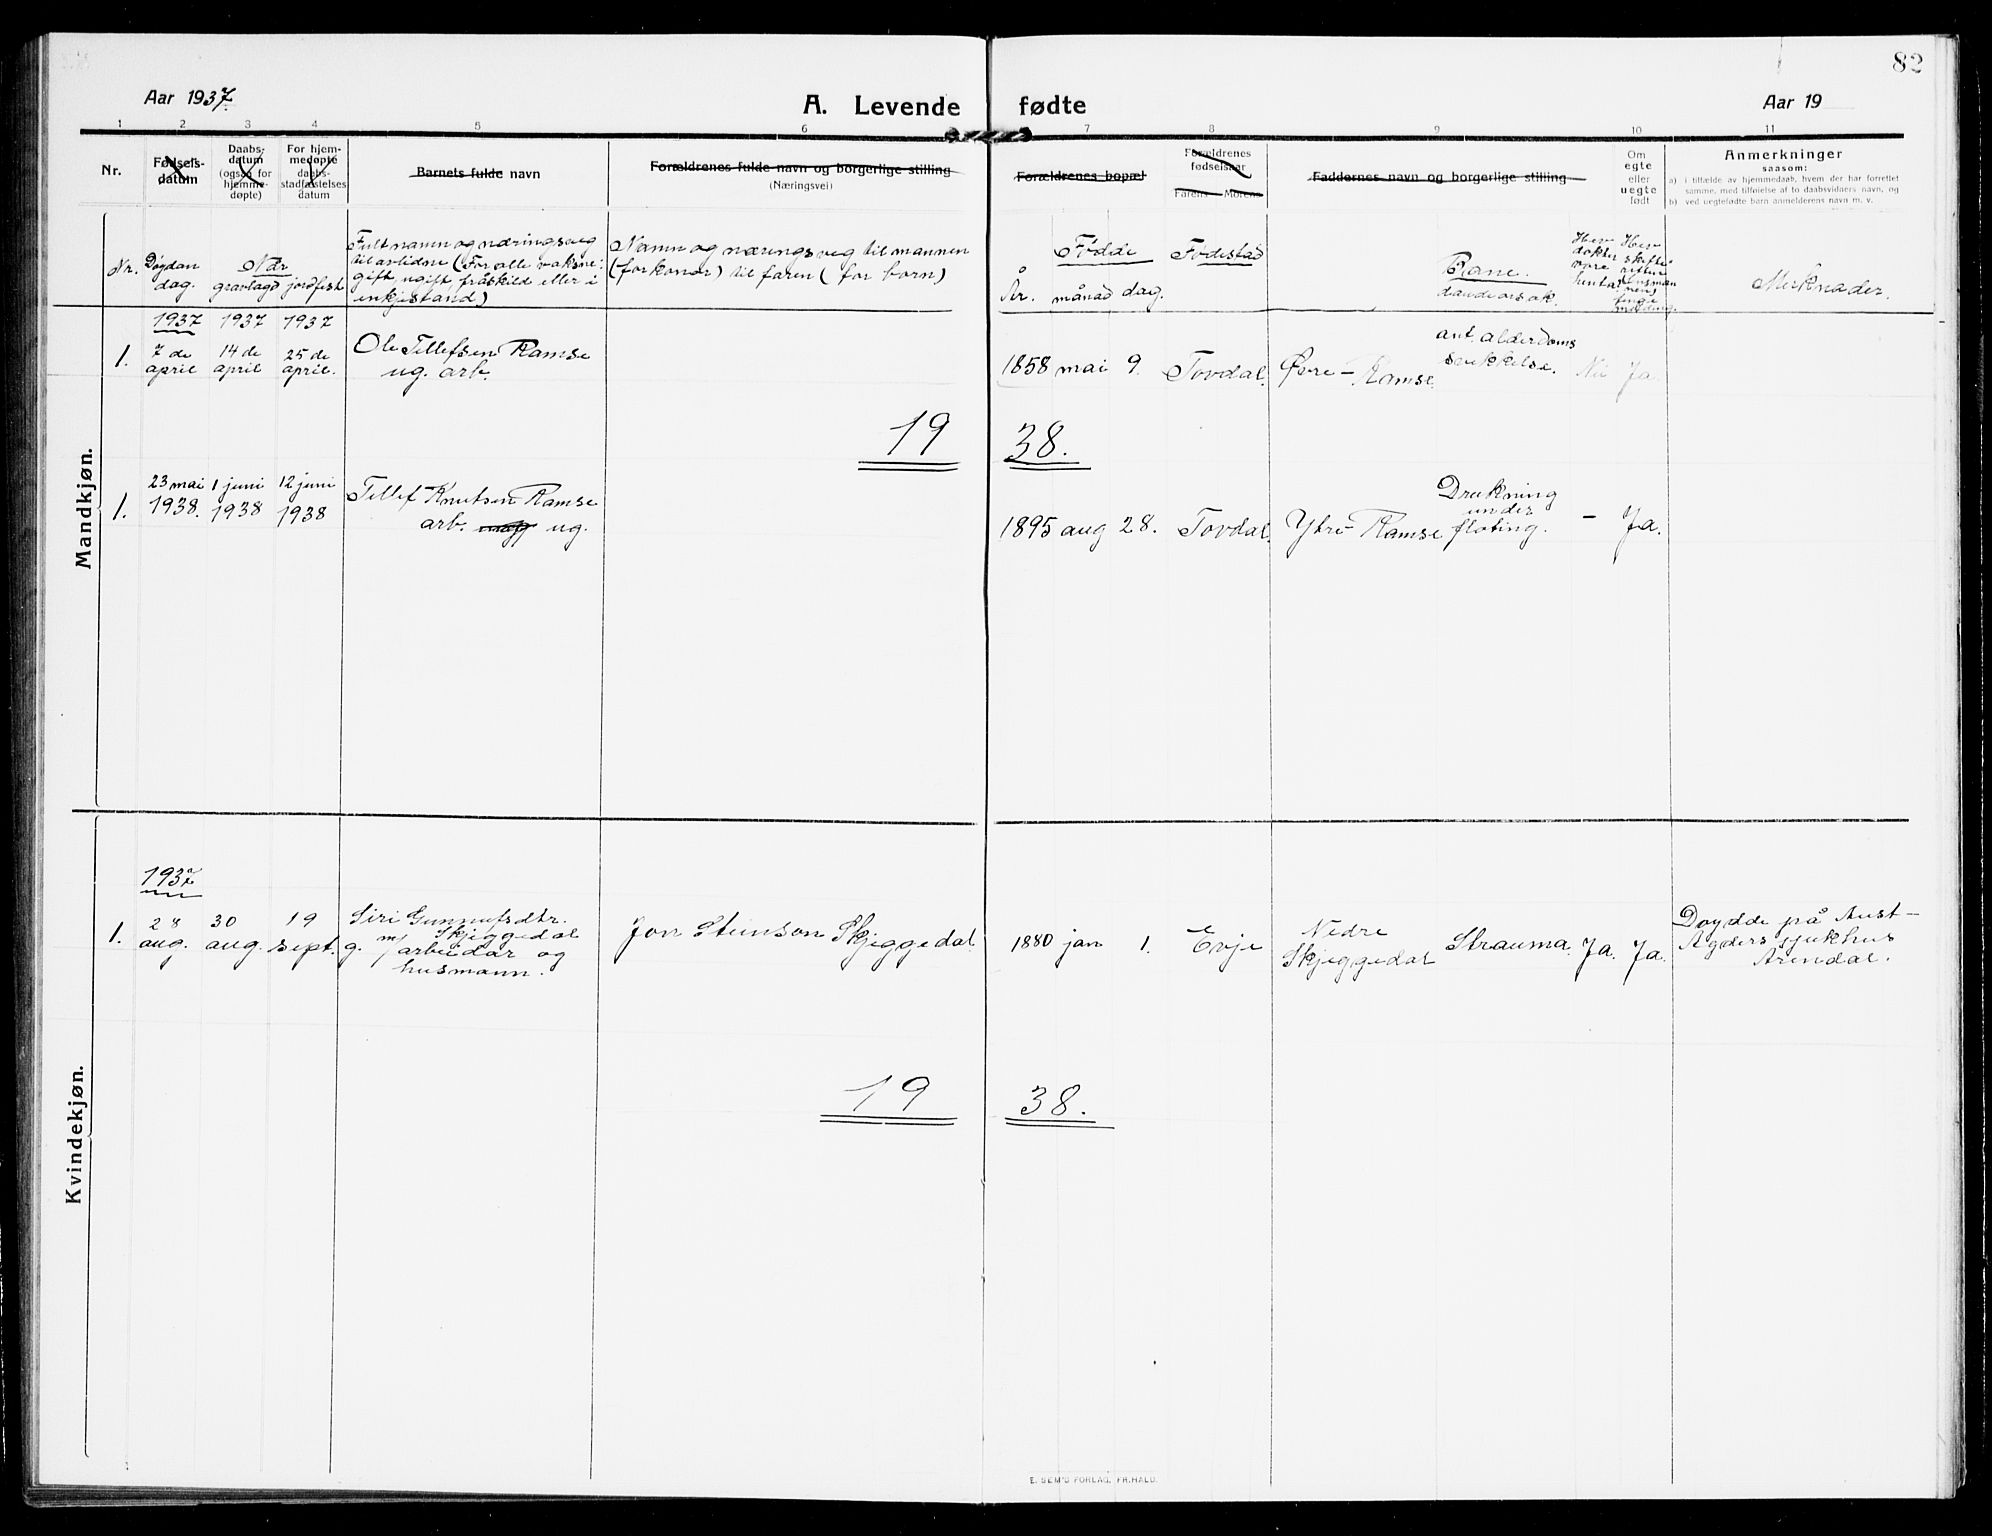 82
Aar 1937.
A. Levende fødte
Aar 19
1 2 3 4 5 6 7 8 9 10 11
Nr.
Fødsels-
datum
Daabs-
datum
(ogsaa for
hjemme-
døpte)
For hjem-
medøpte
daabs-
stadfæstelses
datum
Barnets fulde navn
Forældrenes fulde navn og borgerlige stilling
(Næringsvei)
Forældrenes bopæl
Forældrenes
fødselsaar
Farens Morens
Faddernes navn og borgerlige stilling
Om
egte
eller
uegte
født
Anmerkninger
saasom:
a) i tilfælde av hjemmedaab, hvem der har forrettet
samme, med tilføielse af to daabsvidners navn, og
b) ved uegtefødte barn anmelderens navn m. v.
Nr.
Døydan
dag.
Når
gravlagd jordfest
Fullt namn og næringsveg
til avlidne (For alle vaksne:
gift, ugift, fråskild eller i
enkjestand)
Namn og næringsveg til mannen
(for konor) til faren (for born)
Fødde
År. månad dag.
Fødestad
Bane.
daudsorsak.
Merknader.
Mandkjøn.
1937 1937 1937
1.
7 de
april
14 de
april
25 de
april.
Ole Tellefsen Ramse
ug. arb.
1858 mai 9.
Tovdal.
Øvre-
Ramse.
ant. alderdoms
svekkelse.
Nei
Ja.
19 38.
1.
23 mai
1938.
1 juni
1938
12 juni
1938
Tellef Knutsen Ramse
arb. ug.
1895 aug 28.
Tovdal.
Ytre-Ramse
Drukning
under
fløting.
-
Ja.
Kvindekjøn.
1937
1.
28
aug.
30
aug.
19
sept.
Siri Gunnufsdtr.
Skjeggedal
g. m/ arbeidar og
husmann.
Jon Steinson Skjeggedal
1880 jan 1.
Evje
Nedre
Skjeggedal
Strauma.
Ja.
Ja.
Døydde på Aust-
Agders sjukhus
Arendal.
19 38.
E. SEM'S FORLAG, FR.HALD.